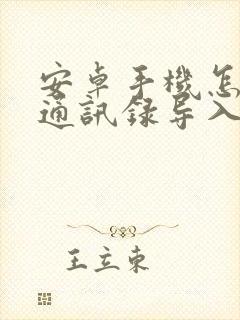 安卓手機怎
通訊錄导入
王立東